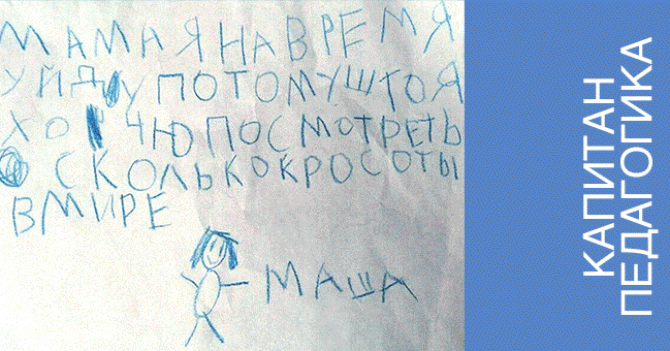 МАМА Я НА ВРЕМЯ
УЙДУ ПОТОМУШТО Я
ХОЧЮ ПОСМОТРЕТЬ
СКОЛЬКО КРОСОТЫ
В МИРЕ
МАША
КАПИТАН
ПЕДАГОГИКА